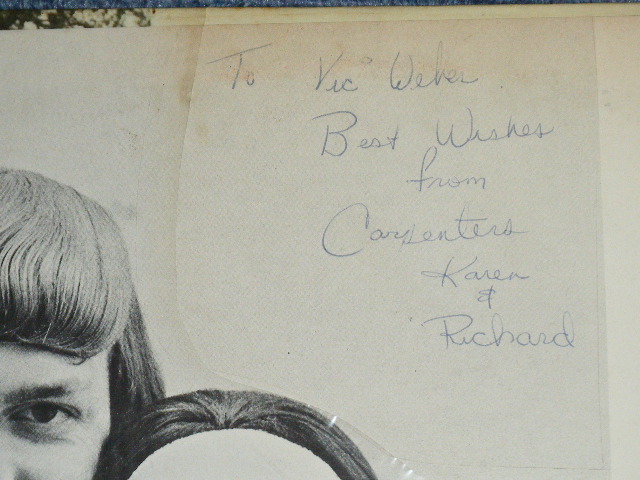 To "Vic" Weber
Best Wishes
from
Carpenters
Karen
&
Richard